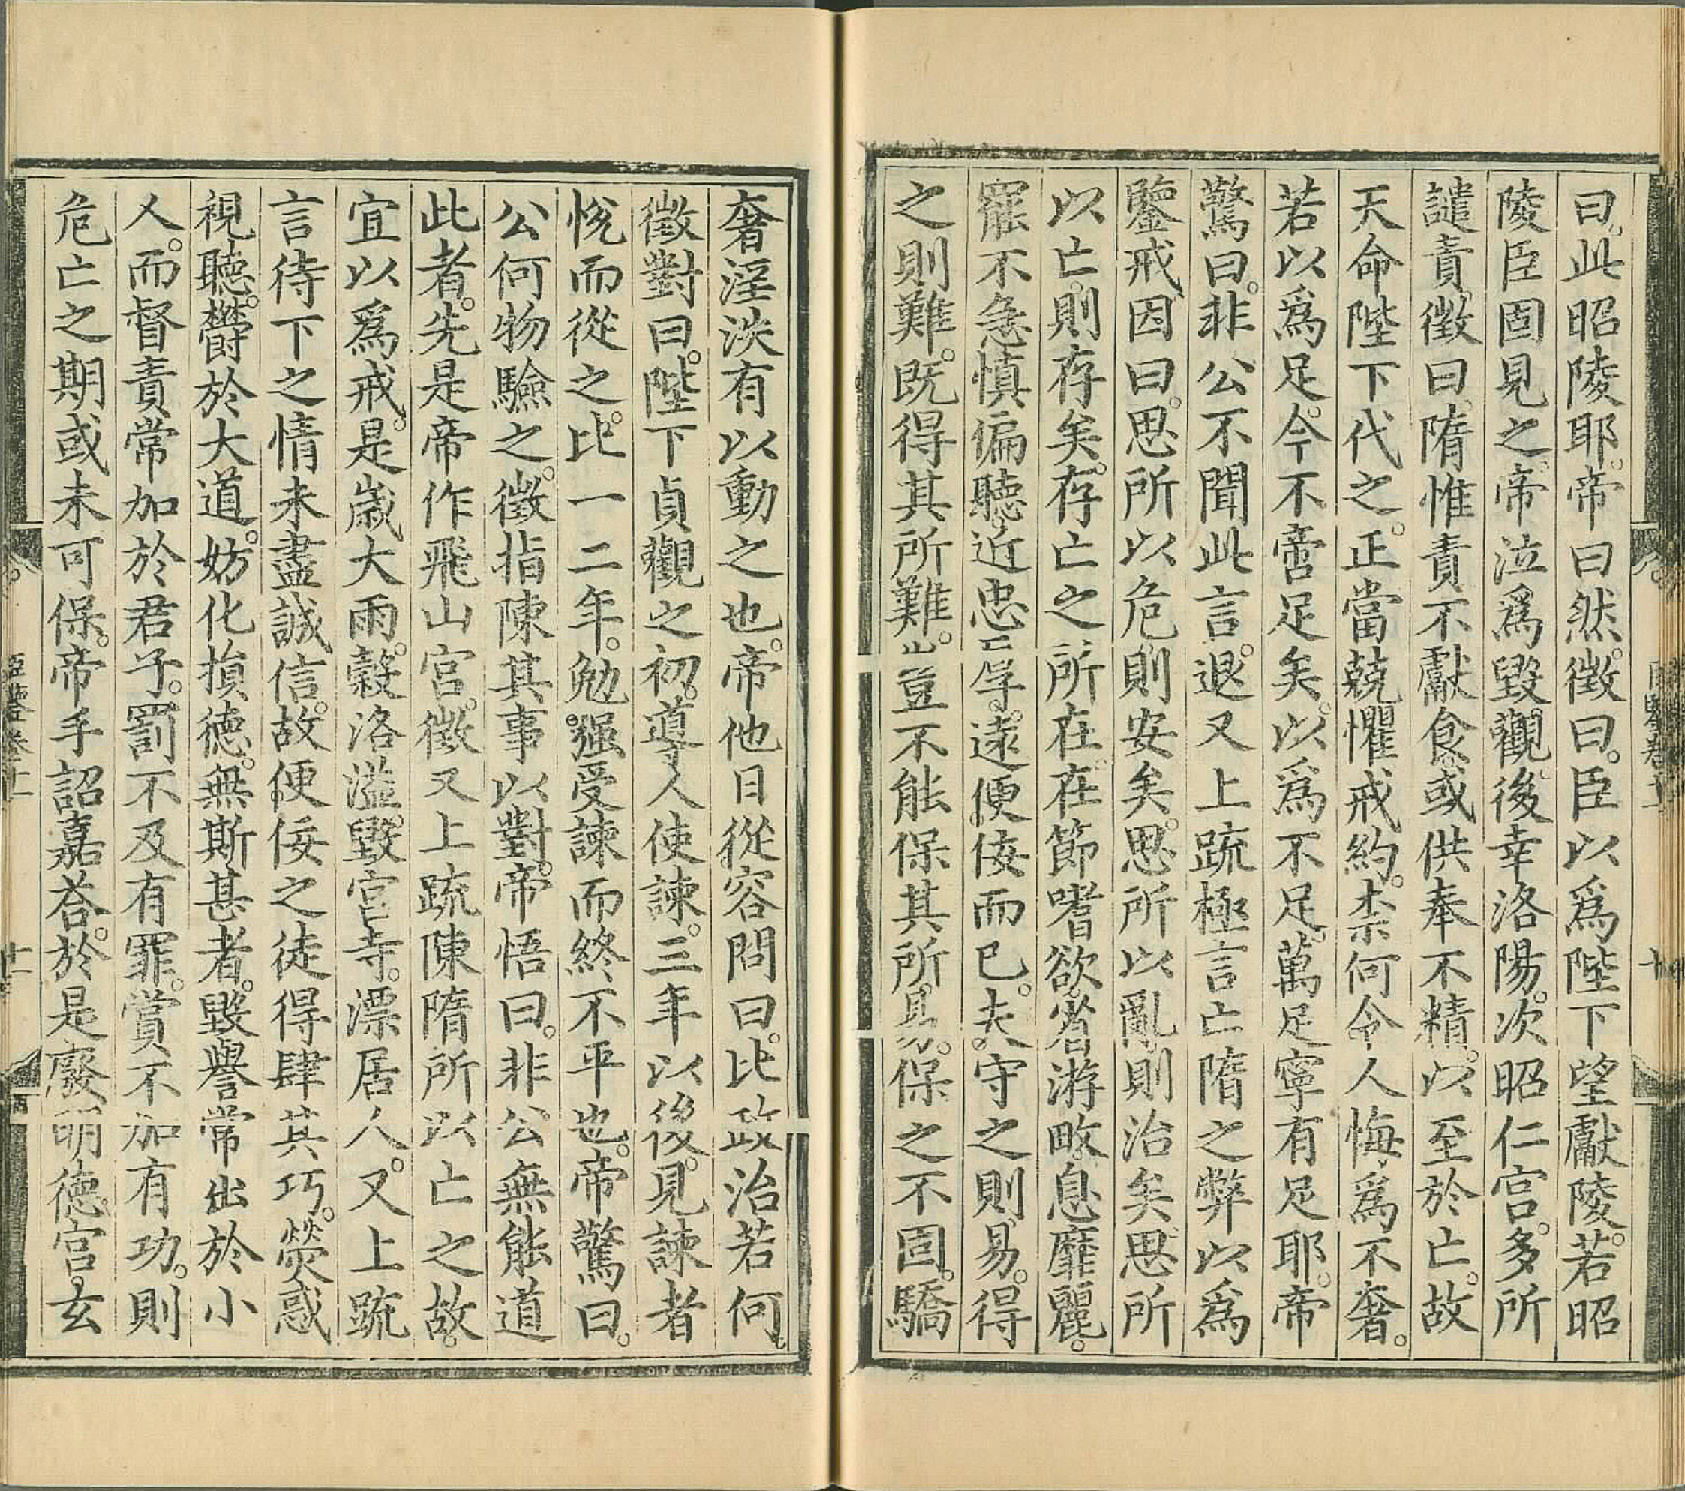 曰。此昭陵耶。帝曰然。徵曰。臣以爲陛下望獻陵。若昭
陵臣固見之。帝泣爲毀觀。後幸洛陽。次昭仁宮。多所
譴責。徵曰。隋惟責不獻食。或供奉不精。以至於亡。故
天命陛下代之。正當兢懼戒約。柰何令人悔爲不奢。
若以爲足。今不啻足矣。以爲不足。萬足寧有足耶。帝
驚曰。非公不聞此言。退又上疏極言亡隋之弊以爲
鑒戒。因曰。思所以危則安矣。思所以亂則治矣。思所
以亡。則存矣。存亡之所在。在節嗜欲。省游畋。息靡麗。
罷不急。慎偏聽。近忠厚。遠便佞而已。夫守之則易。得
之則難。既得其所難。豈不能保其所易。保之不固。驕
奢淫泆有以動之也。帝他日從容問曰。比政治若何。
徵對曰。陛下貞觀之初。導人使諫。三年以後。見諫者
悅而從之。比一二年。勉强受諫而終不平也。帝驚曰。
公何物驗之。徵指陳其事以對。帝悟曰。非公無能道
此者。先是帝作飛山宮。徵又上疏陳隋所以亡之故。
宜以爲戒。是歲大雨。穀洛溢。毀宮寺。漂居人。又上疏
言待下之情未盡誠信。故便佞之徒得肆其巧。熒惑
視聽。鬱於大道。妨化損德。無斯甚者。毀譽常出於小
人。而督責常加於君子。罰不及有罪。賞不加有功。則
危亡之期或未可保。帝手詔嘉荅。於是廢明德宮。玄